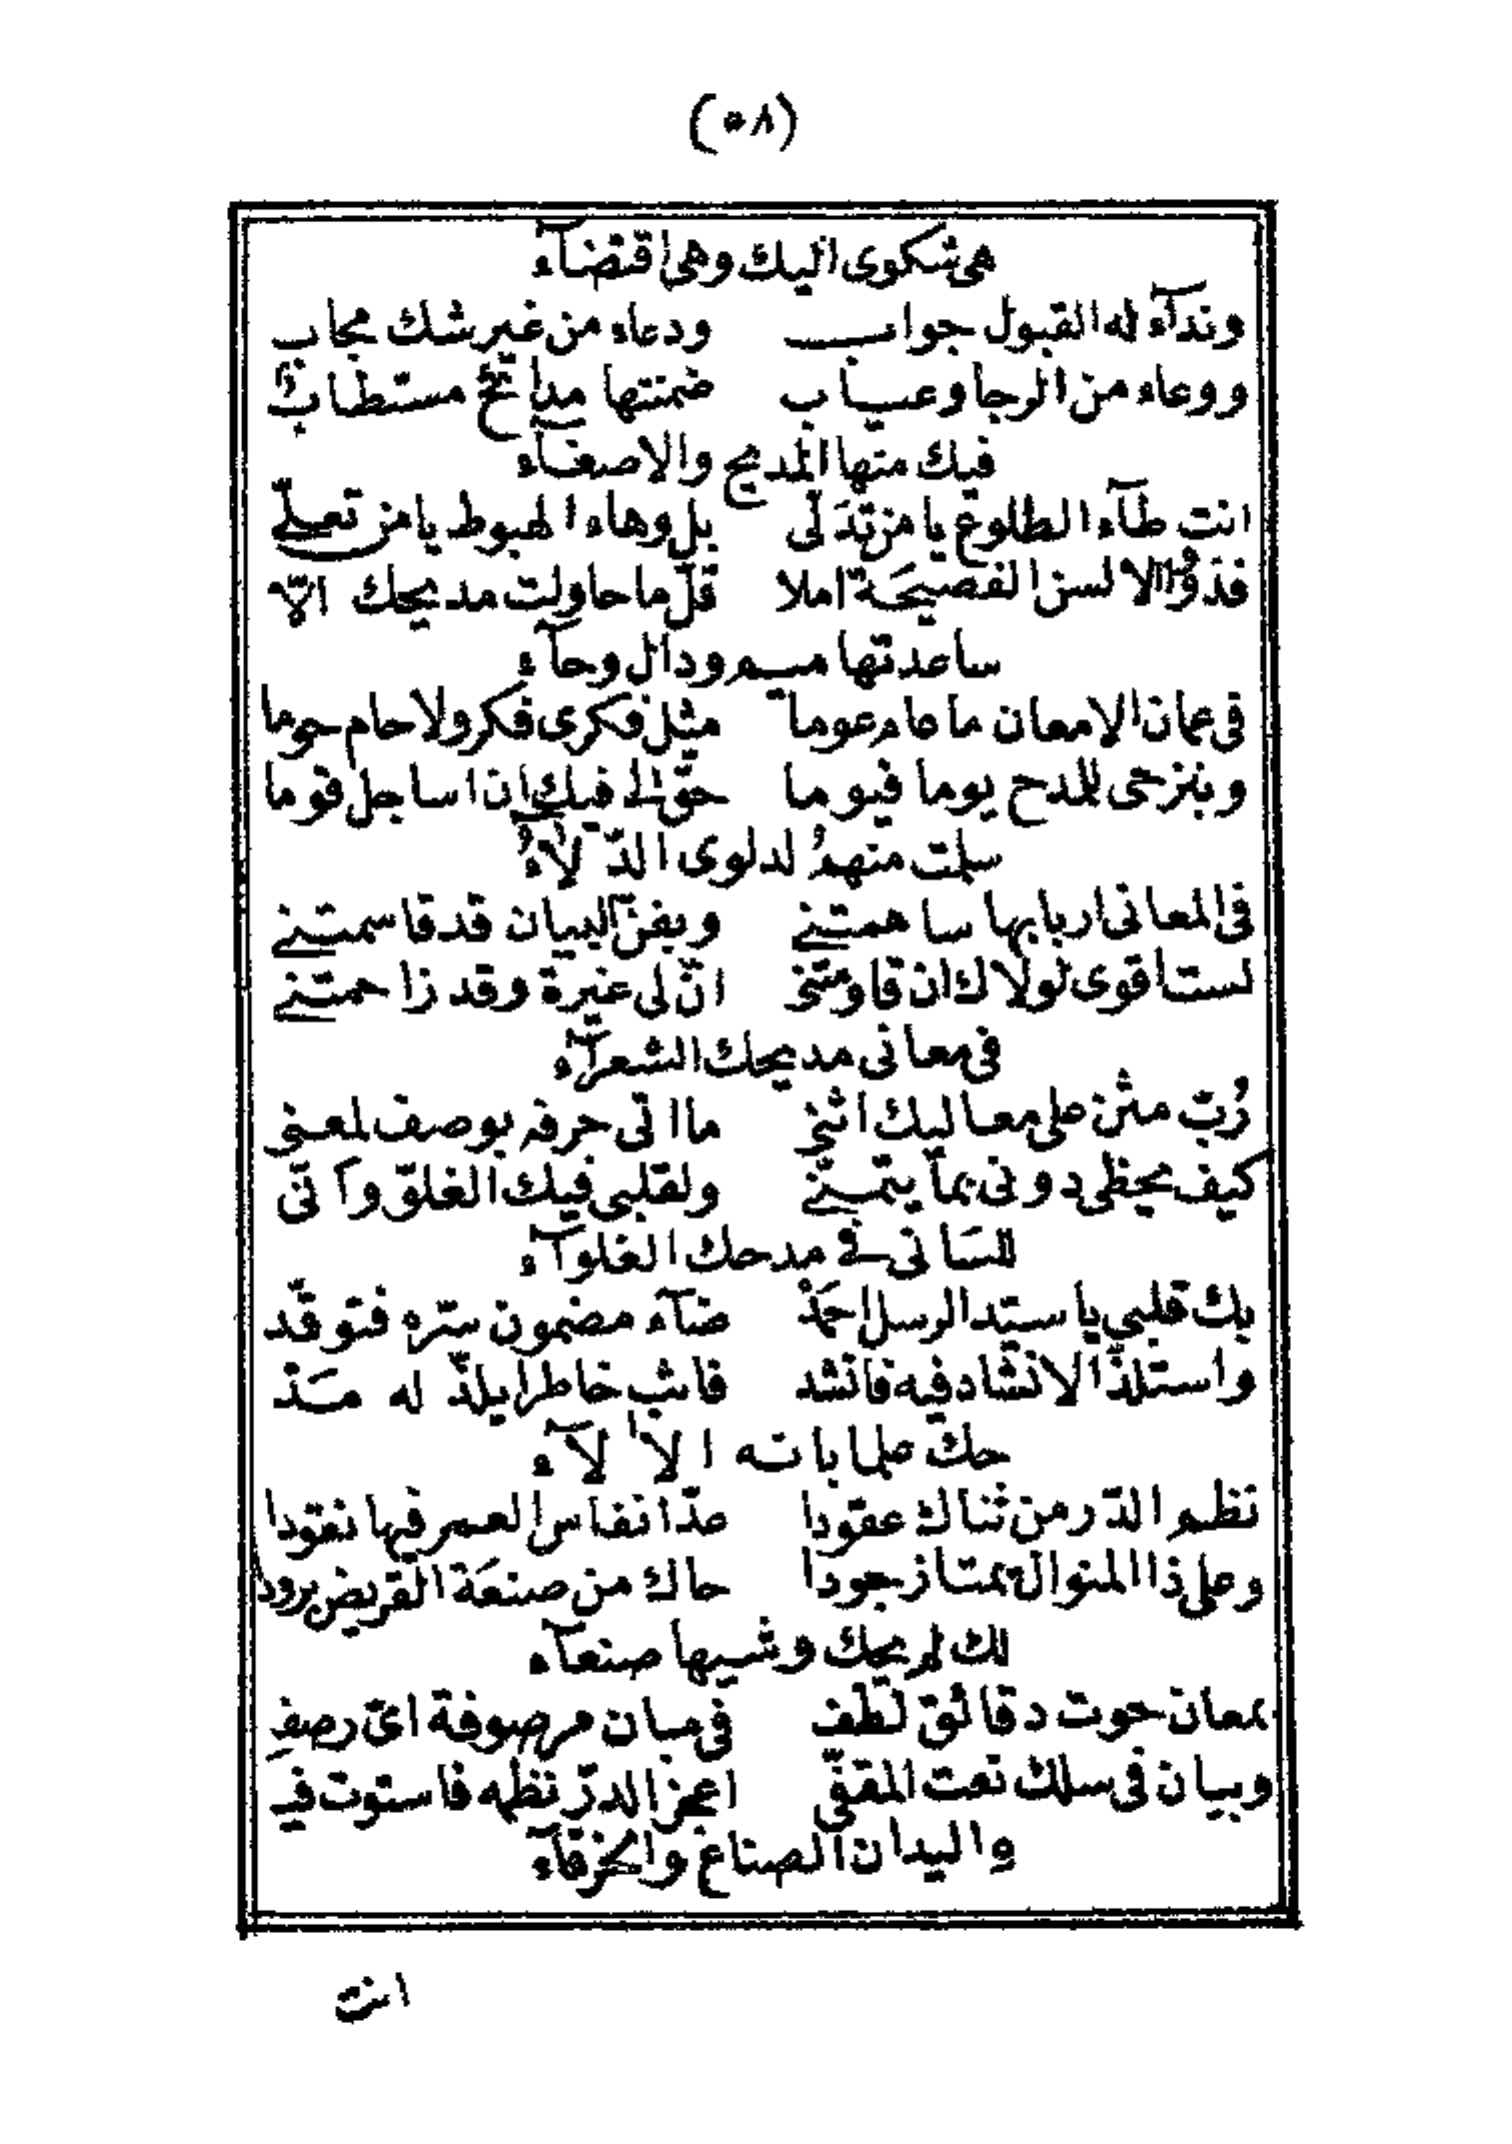 (٥٨)
هى شكوى اليك وهى اقتضآء
وندآء له القبول جواب ودعاء من غير شك مجاب
ووعاء من الرجا وعياب ضمنتها مدائح مستطاب
فيك منها المديح والاصغآء
انت طآء الطلوع يا من تدَلّى بل وهاء الهبوط يا من تعلّى
فذوُوا الالسن الفصيحَة املا قلّ ما حاولت مديحك الّا
ساعدتها ميم ودال وحآء
فى عمان الامعان ما عام عوما مثل فكرى فكر ولا حام حوما
وبنزحى للمدح يوما فيوما حقّ لى فيك ان اساجل قوما
سلمت منهمُ لدلوى الدّلآءُ
فى المعانى اربابها ساهمتنى وبفنّ البيان قد قاسمتنى
لست اقوى لولاك ان قاومتنى انّ لى غيرة وقد زاحمتنى
فى معانى مديحك الشعرآء
رُبّ مثن على معاليك اثنى ما اتى حرفه بوصف لمعنى
كيف يحظى دونى بما يتمنّى ولقلبى فيك الغلوّ وأنّى
للسَانى فى مدحك الغلوآء
بك قلبى يا سيّد الرسل احمَدْ ضآء مضمون سرّه فتوقّد
واستلذّ الانشاد فيه فانشد فاثب خاطرا يلذّ له مَدْ
حك علما بانه الألآء
نظم الدّر من ثناك عقودا عدّ انفاس العمر فيها نقودا
وعلى ذا المنوال يمتاز جودا حاك من صنعَة القريض برودا
لك لم يحك وشيها صنعآء
بمعان حوت دقائق لطف فى مبان مرصوفة اىّ رصفِ
وبيان فى سلك نعت المقفّى اعجز الدرّ نظمه فاستوت فيـ
ـه اليدان الصناع والخرقآء
انت